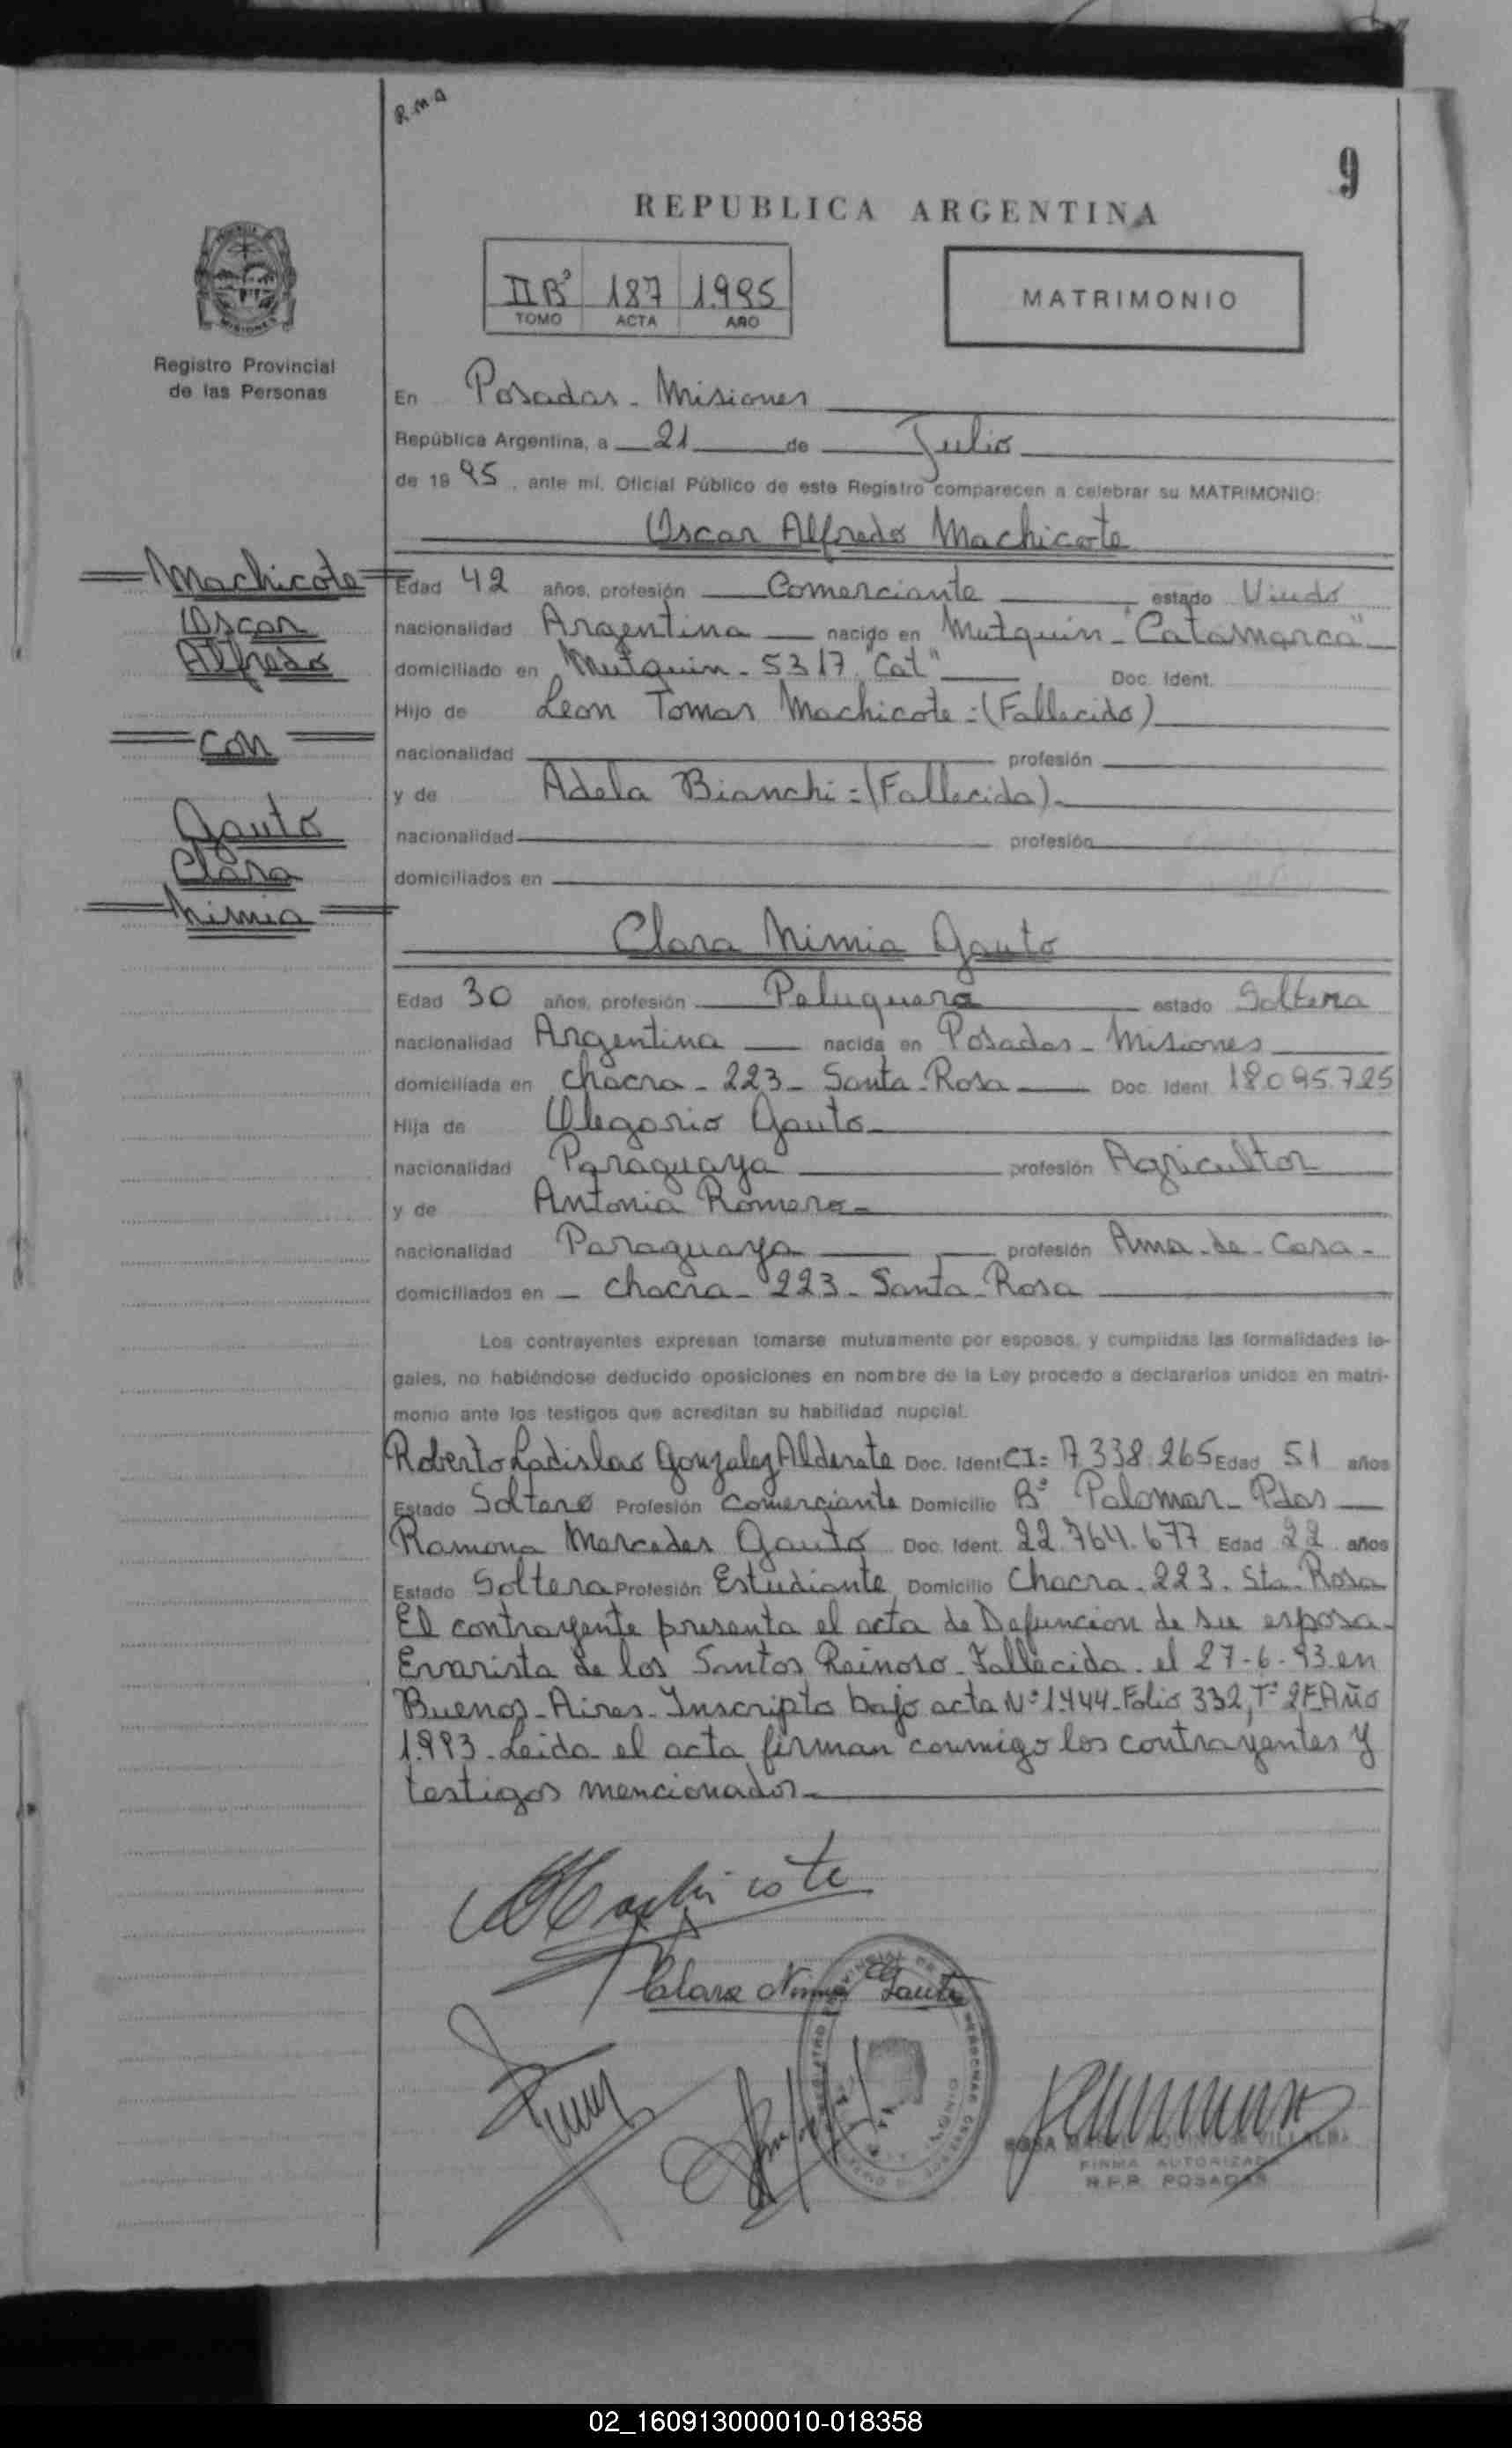 R.M.A
9
REPUBLICA ARGENTINA
II Bº 187 1.995
TOMO ACTA AÑO
MATRIMONIO
Registro Provincial
de las Personas
En Posadas - Misiones
República Argentina, a 21 de Julio
de 19 95, ante mí, Oficial Público de este Registro comparecen a celebrar su MATRIMONIO:
Oscar Alfredo Machicote
Machicote
Oscar
Alfredo
con
Gauto
Clara
Nimia
Edad 42 años, profesión Comerciante estado Viudo
nacionalidad Argentina nacido en Mutquin - "Catamarca"
domiciliado en Mutquin - 5317 "Cat" Doc. Ident.
Hijo de Leon Tomas Machicote = (Fallecido)
nacionalidad profesión
y de Adela Bianchi = (Fallecida).
nacionalidad profesión
domiciliados en
Clara Nimia Gauto
Edad 30 años, profesión Peluquera estado Soltera
nacionalidad Argentina nacida en Posadas - Misiones
domiciliada en chacra - 223 - Santa - Rosa Doc. Ident. 18.095.725
Hija de Olegario Gauto
nacionalidad Paraguaya profesión Agricultor
y de Antonia Romero
nacionalidad Paraguaya profesión Ama - de - Casa -
domiciliados en - chacra - 223 - Santa - Rosa
Los contrayentes expresan tomarse mutuamente por esposos, y cumplidas las formalidades le-
gales, no habiéndose deducido oposiciones en nombre de la Ley procedo a declararlos unidos en matri-
monio ante los testigos que acreditan su habilidad nupcial.
Roberto Ladislao Gonzalez Alderete Doc. Ident CI= 7.338.265 Edad 51 años
Estado Soltero Profesión Comerciante Domicilio Bº Palomar - Pdas
Ramona Mercedes Gauto Doc. Ident. 22.764.677 Edad 22 años
Estado Soltera Profesión Estudiante Domicilio Chacra. 223. Sta. Rosa
El contrayente presenta el acta de Defuncion de su esposa -
Evarista de los Santos Reinoso - Fallecida - el 27-6-93 en
Buenos - Aires - Inscripto bajo acta Nº 1.444 - Folio 332, Tº 2F Año
1.993 - Leida el acta firman conmigo los contrayentes y
testigos mencionados -
Machicote
Clara Nimia Gauto
FIRMA AUTORIZADA
R.P.P. POSADAS
02_160913000010-018358